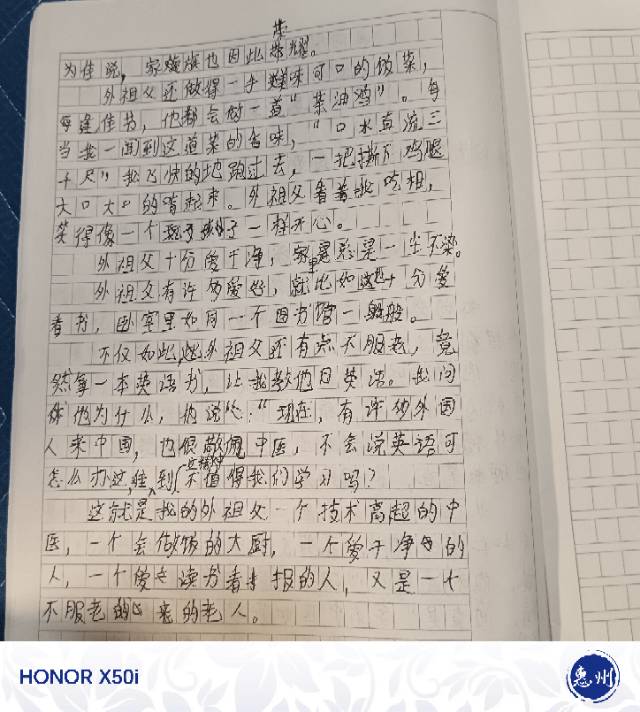 荣
为佳说,家族也因此荣耀。
外祖父还做得一手美味可口的饭菜,
每逢佳节,他都会做一道“茶油鸡”。每
当我一闻到这道菜的香味,“口水直流三
千尺”我飞快的地跑过去,一把撕下鸡腿
大口大口的啃起来。外祖父看着我吃相,
笑得像一个孩子一样开心。
外祖父十分爱干净,家里总是一尘不染。
外祖父有许多爱好,就比如十分爱
看书,卧室里如同一个图书馆一般。
不仅如此,外祖父还有点不服老,竟
然拿一本英语书,让我教他日英语。我问
他为什么,他说:“现在,有许多外国
人来中国,也很敬佩中医,不会说英语可
怎么办这,难到这精神不值得我们学习吗?
这就是我的外祖父一个技术高超的中
医,一个会做饭的大厨,一个爱干净的
人,一个爱读书看报的人,又是一个
不服老的老人。
HONOR X50i
惠州